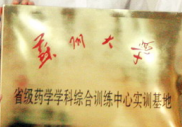 苏州大学
省级药学学科综合训练中心实训基地